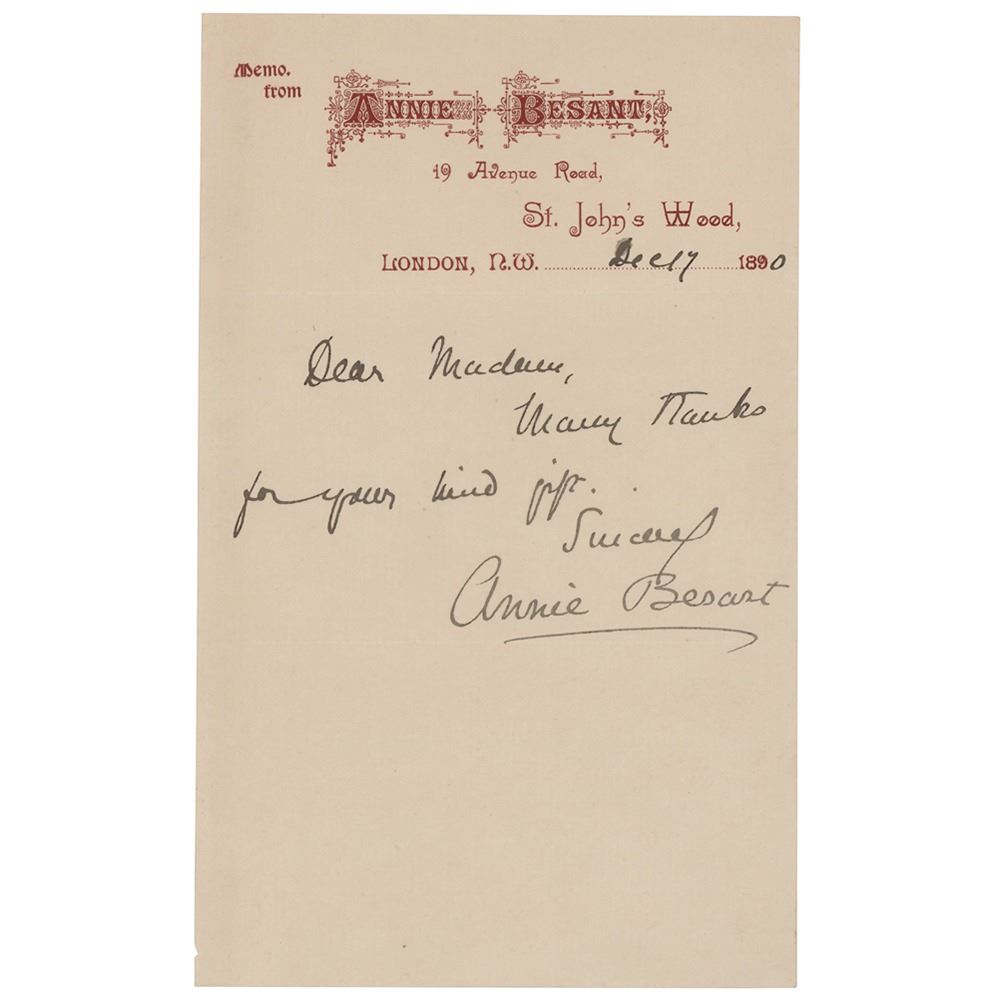 Memo.
from
ANNIE BESANT,
19 Avenue Road,
St. John's Wood,
LONDON, N.W. Dec 17 1890
Dear Madam,
Many thanks
for your kind gift.
Sincerely
Annie Besant